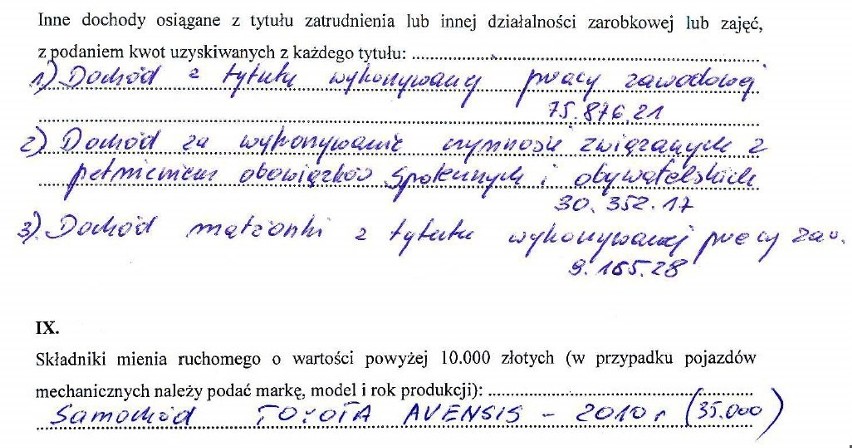 Inne dochody osiągane z tytułu zatrudnienia lub innej działalności zarobkowej lub zajęć,
z podaniem kwot uzyskiwanych z każdego tytułu:
1) Dochód z tytułu wykonywanej pracy zawodowej
75.876.21
2) Dochód za wykonywanie czynności związanych z
pełnieniem obowiązków społecznych i obywatelskich
30.352.17
3) Dochód małżonki z tytułu wykonywanej pracy zaw.
9.165.28
IX.
Składniki mienia ruchomego o wartości powyżej 10.000 złotych (w przypadku pojazdów
mechanicznych należy podać markę, model i rok produkcji):
Samochód TOYOTA AVENSIS - 2010 r (35.000)